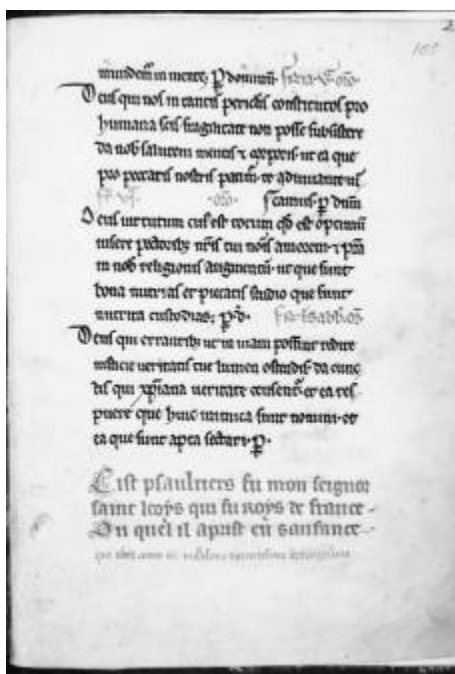 2
185
mundemur in mente. p dominum. feria v. oro.
Deus qui nos in tantis periculis constitutos pro
humana scis fragilitate non posse subsistere
da nob salutem mentis ⁊ corporis. ut ea que
pro peccatis nostris patim te adiuvante vi
scamus. p dnm
oro.
Deus virtutum cui est totum qd est optimum
insere pectoribz nris tui nois amorem. ⁊ psta
in nob religionis augmentu. ut que sunt
bona nutrias et pietatis studio que sunt
nutrita custodias; p. d.
Deus qui errantibz ut in viam possint redire
iusticie veritatis tue lumen ostendis. da cunc
tis qui xpiana
puere que huic inimica sunt nomini. et
ea que sunt apta sectari. p.
Cist psaultiers fu mon seignor
saint looys qui fu roys de france.
Ou quel il aprist en sanfance.